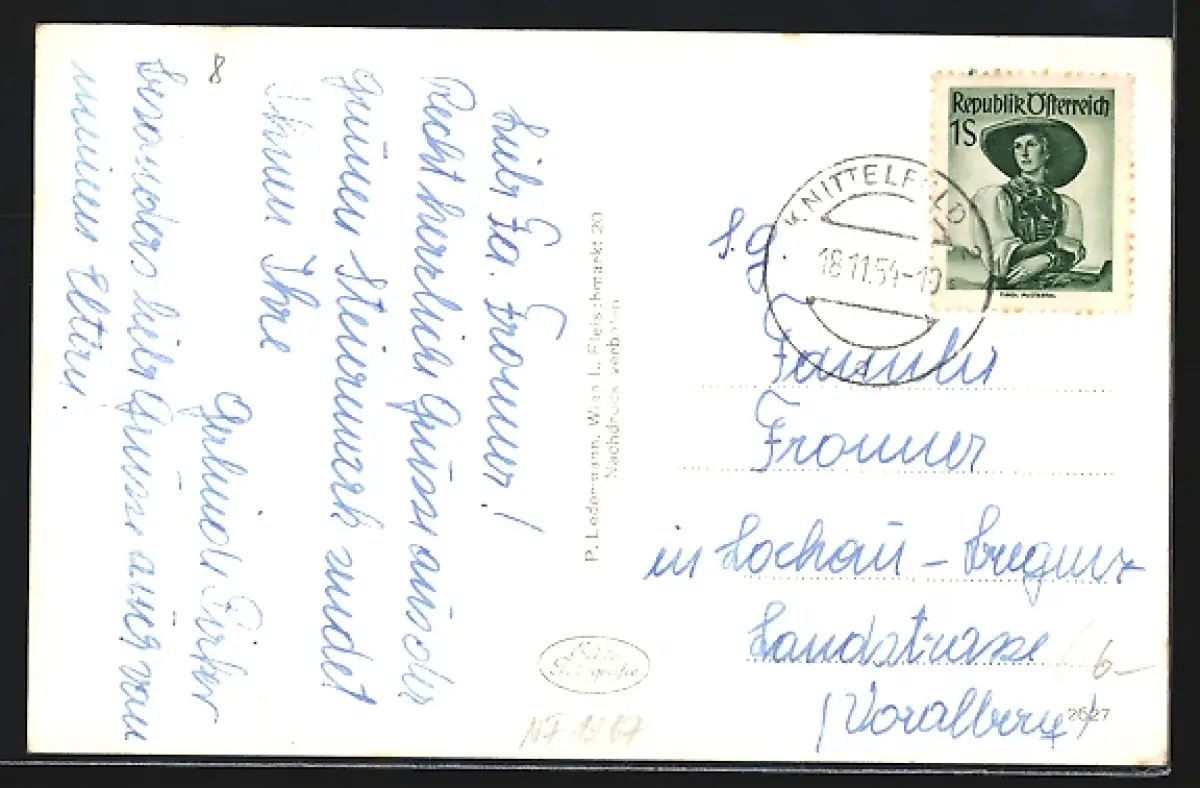 Liebe Fa. Fronner!
Recht herrliche Grüsse aus der
grünen Steiermark sendet
Ihnen Ihre
Gerlinde Pirker
besonders liebe Grüsse auch von
meinen Eltern.
8
P. Ledermann, Wien I., Fleischmarkt 20
Nachdruck verboten
Republik Österreich
1S
KNITTELFELD 2
18.11.54-10
S.g.
Familie
Fronner
in Lochau - Bregenz
Landstrasse
(Voralberg)
6-
2627